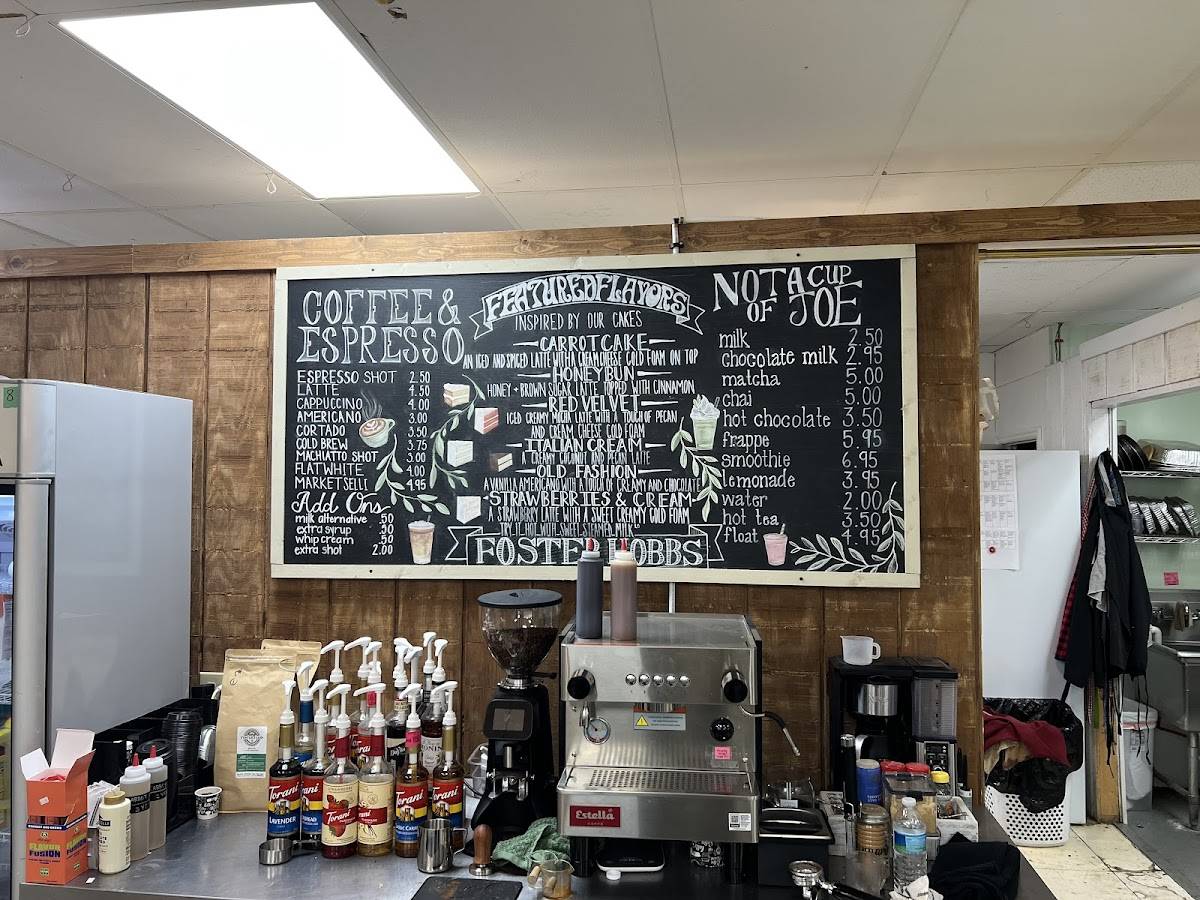 COFFEE &
ESPRESSO
ESPRESSO SHOT 2.50
LATTE 4.50
CAPPUCCINO 4.00
AMERICANO 3.00
CORTADO 3.50
COLD BREW 3.75
MACHIATTO SHOT 3.00
FLAT WHITE 4.00
MARKET SELLT 4.95
Add Ons
milk alternative .50
extra syrup .50
whip cream .50
extra shot 2.00
FEATURED FLAVORS
INSPIRED BY OUR CAKES
CARROT CAKE
AN ICED AND SPICED LATTE WITH A CREAM CHEESE COLD FOAM ON TOP
HONEY BUN
HONEY + BROWN SUGAR LATTE TOPPED WITH CINNAMON
RED VELVET
ICED CREAMY MOCHA LATTE WITH A TOUCH OF PECAN
AND CREAM CHEESE COLD FOAM
ITALIAN CREAM
A CREAMY COCONUT AND PECAN LATTE
OLD FASHION
A VANILLA AMERICANO WITH A TOUCH OF CREAMY AND CHOCOLATE
STRAWBERRIES & CREAM
A STRAWBERRY LATTE WITH A SWEET CREAMY COLD FOAM
TRY IT HOT WITH SWEET STEAMED MILK
FOSTE HOBBS
NOT A CUP
OF JOE
milk 2.50
chocolate milk 2.95
matcha 5.00
chai 5.00
hot chocolate 3.50
frappe 5.95
smoothie 6.95
lemonade 3.95
water 2.00
hot tea 3.50
float 4.95
8
Torani
LAVENDER
Torani
Torani
Torani
Torani
FLAVOR
FUSION
Estella